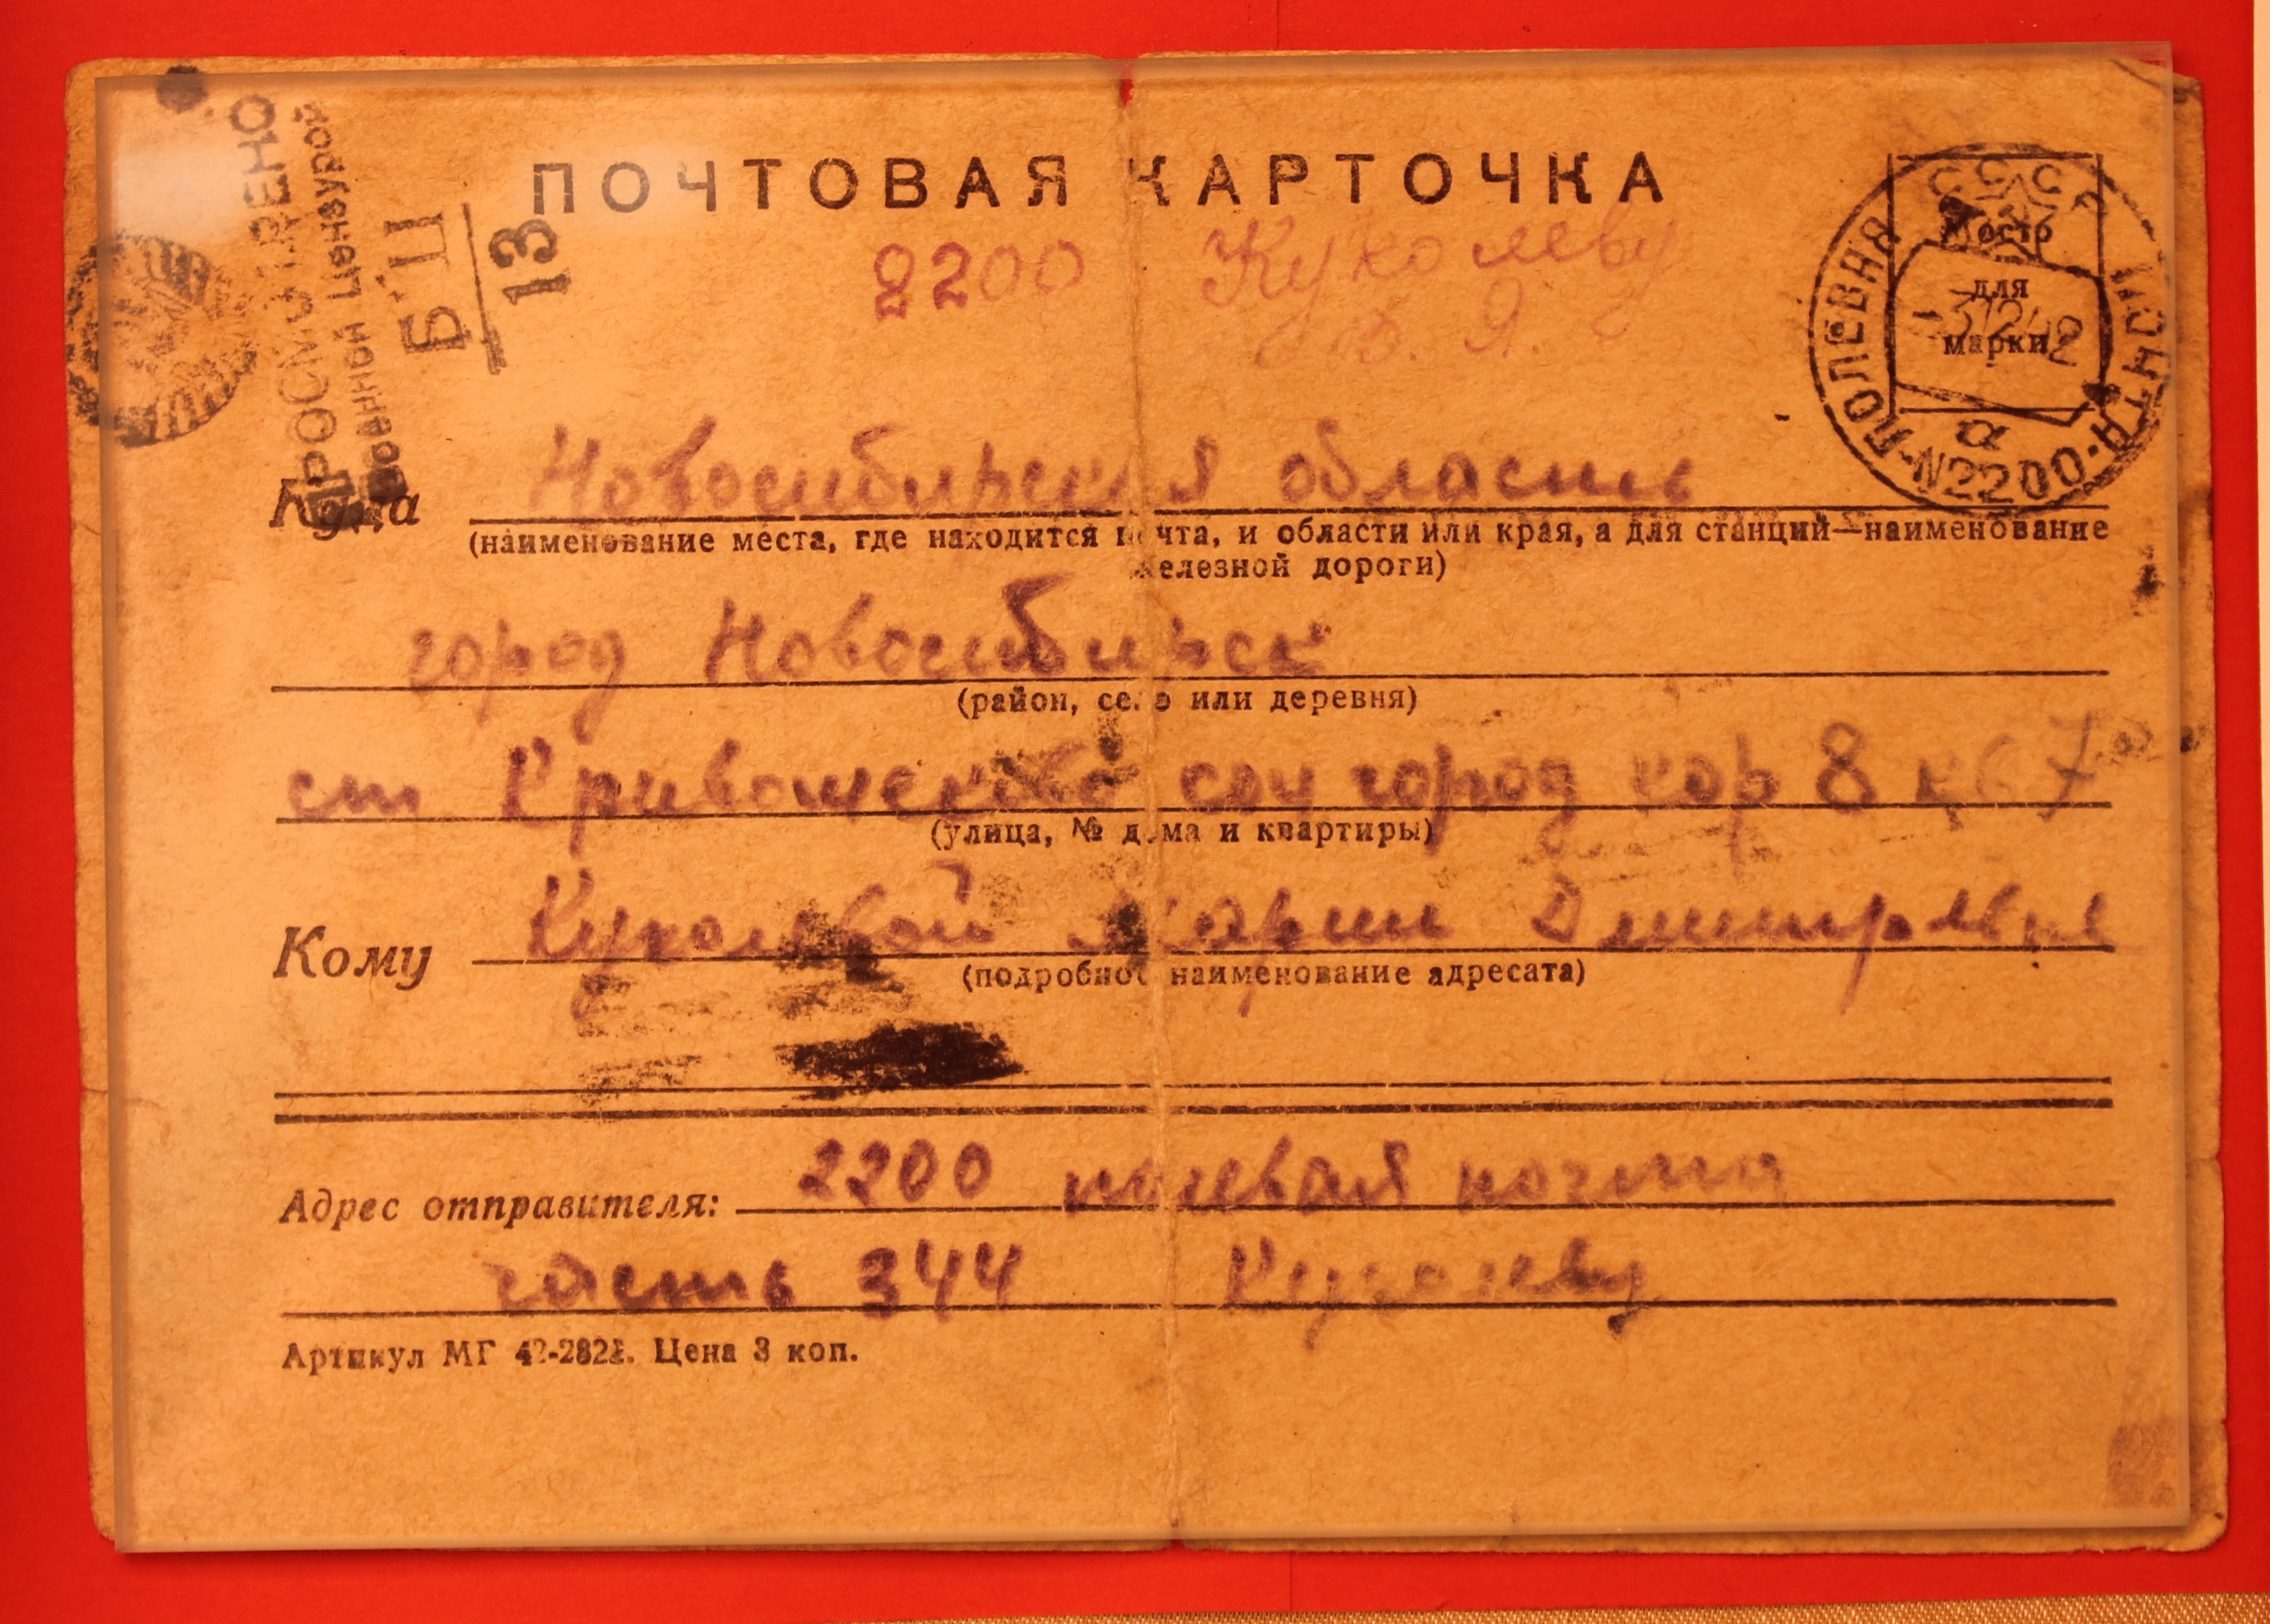 ПРОСМОТРЕНО
Военной Цензурой
Б'Ц
13
ПОЧТОВАЯ КАРТОЧКА
2200 Куколеву
В. Я.
СССР
ПОЛЕВАЯ ПОЧТА
N2200
а
Место
для
марки
Куда Новосибирская область
(наименование места, где находится почта, и области или края, а для станций—наименование
железной дороги)
город Новосибирск
(район, село или деревня)
ст Кривощеково соц город кор 8 к 67
(улица, № дома и квартиры)
Кому Куколевой Марии Дмитр
(подробное наименование адресата)
Адрес отправителя: 2200 полевая почта
часть 344 Куколеву
Артикул МГ Цена 3 коп.